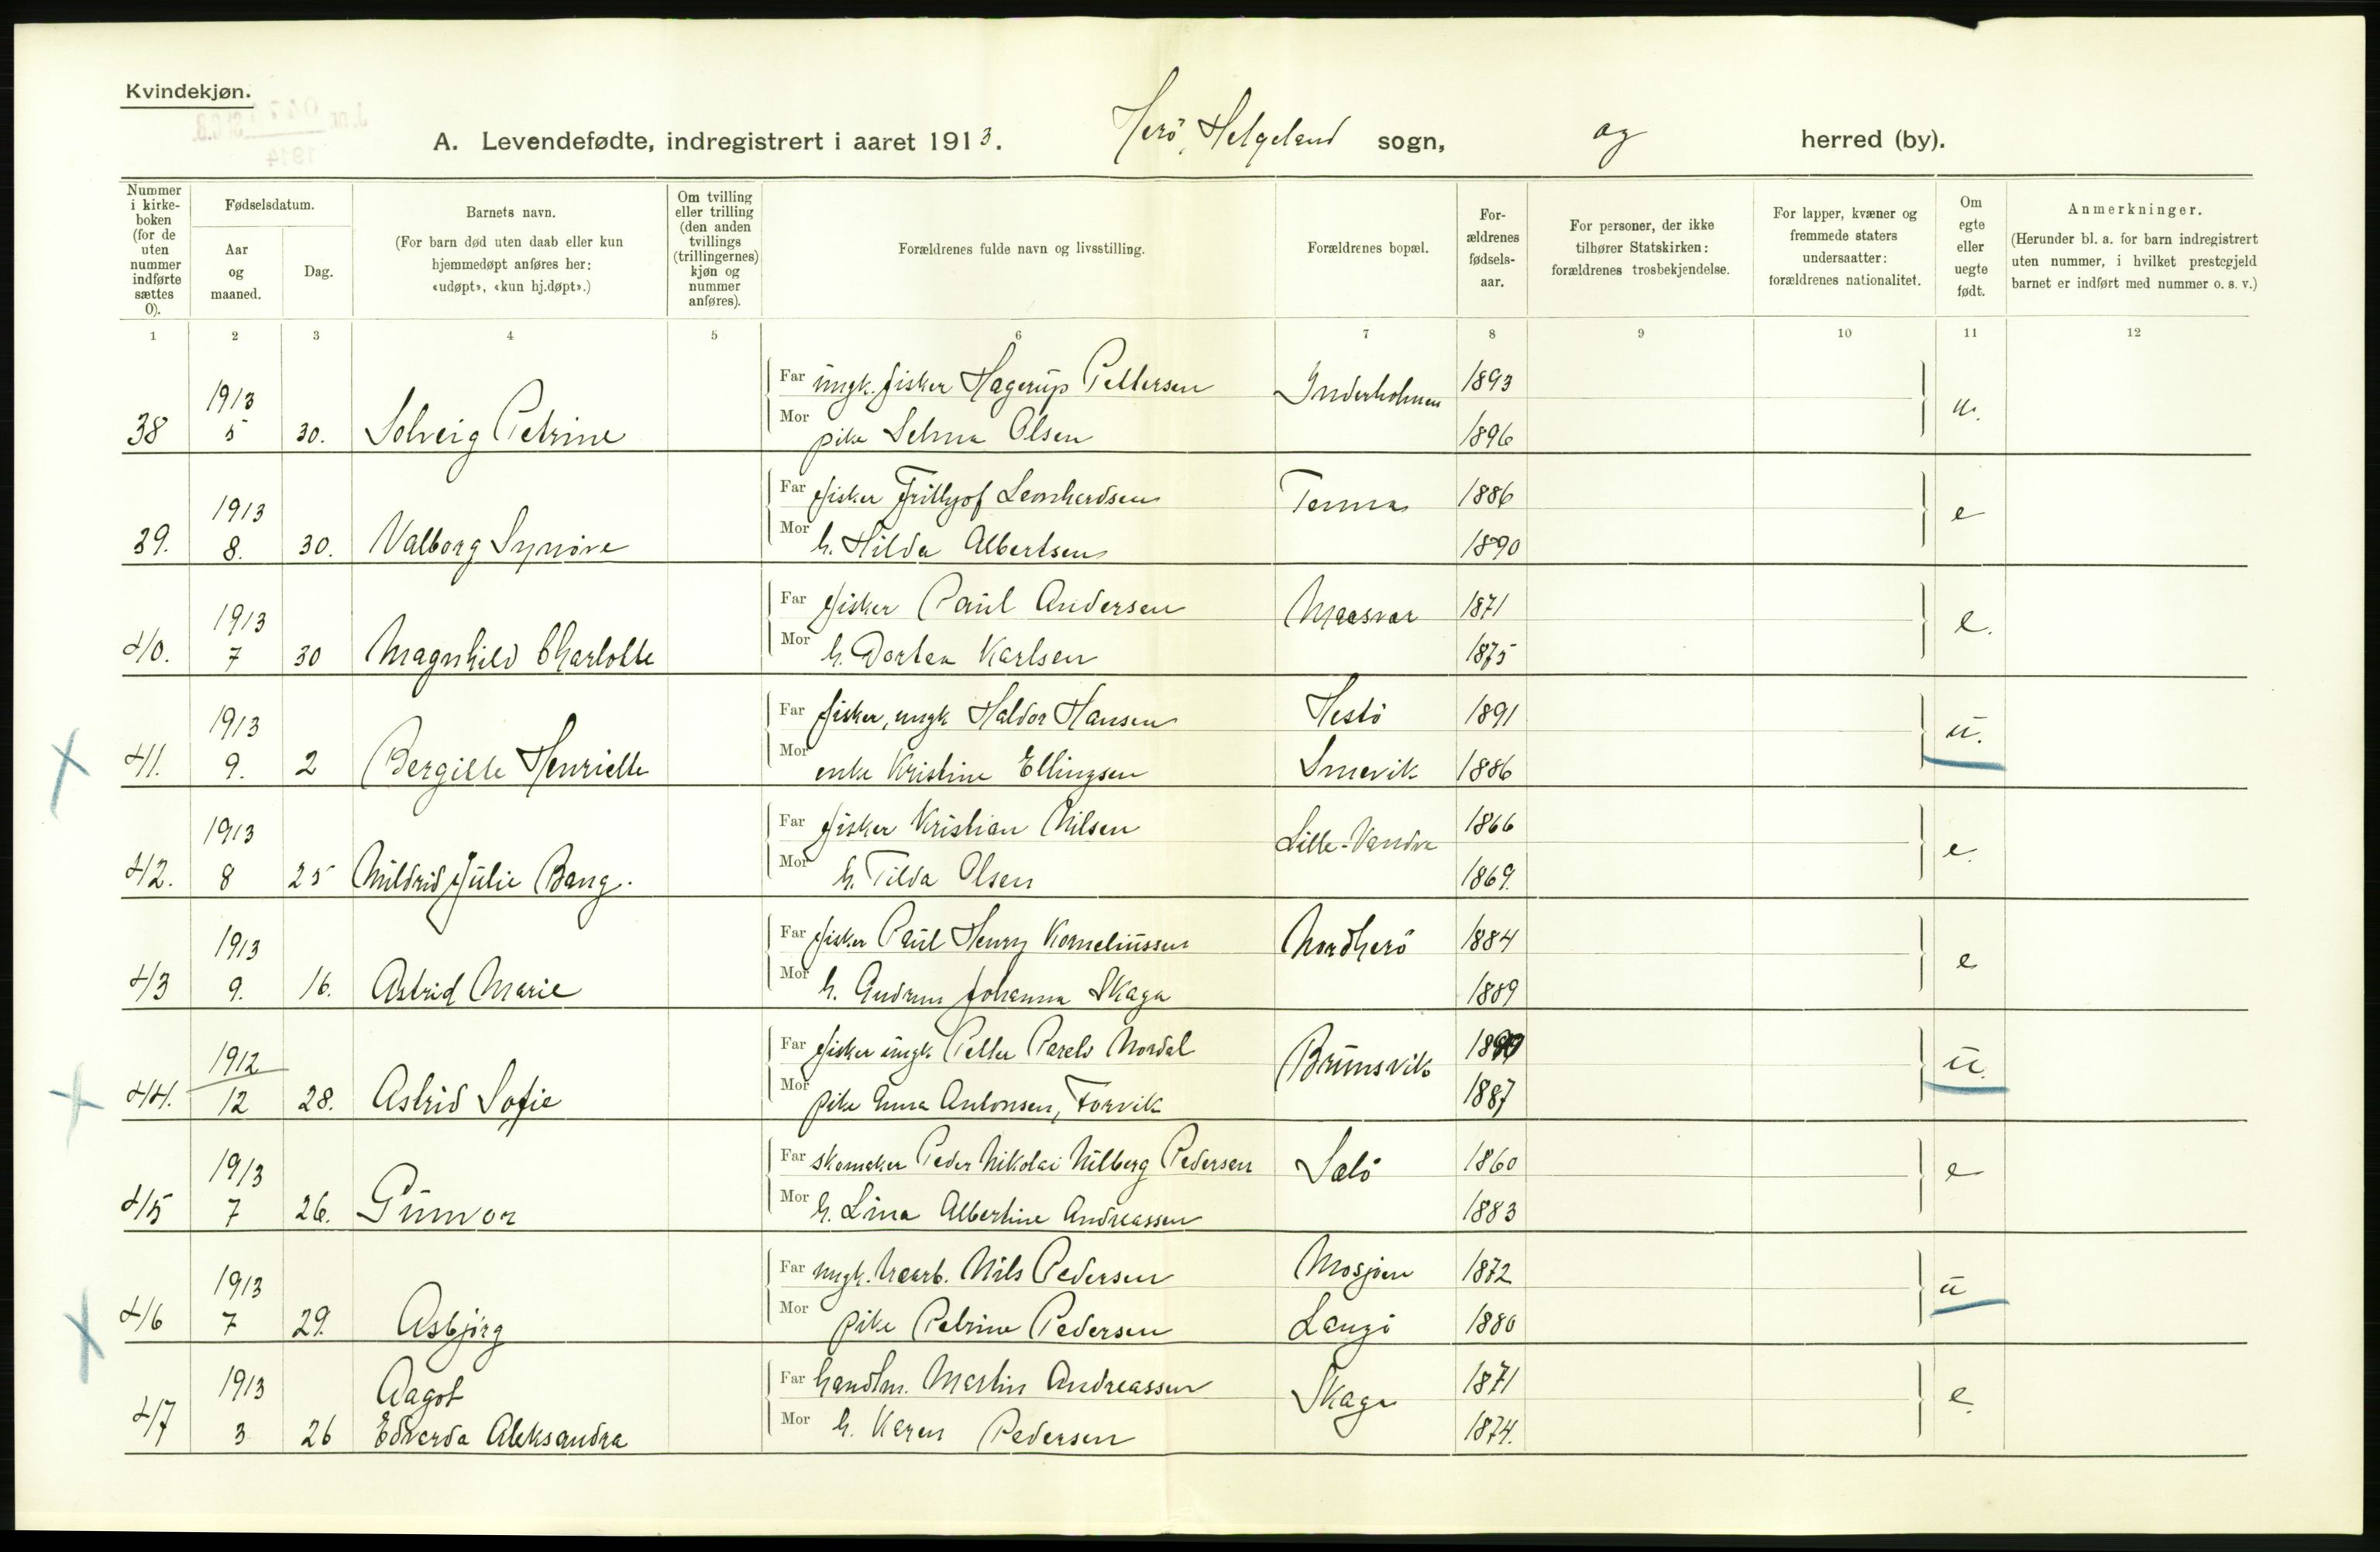 Kvindekjøn.
A. Levendefødte, indregistrert i aaret 1913. Herö, Helgeland sogn, og herred (by).
Nummer i kirkeboken (for de uten nummer indførte sættes 0).
Fødselsdatum.
Aar og maaned.
Dag.
Barnets navn.
(For barn død uten daab eller kun hjemmedøpt anføres her: «udøpt», «kun hj.døpt».)
Om tvilling eller trilling (den anden tvillings (trillingernes) kjøn og nummer anføres).
Forældrenes fulde navn og livsstilling.
Forældrenes bopæl.
Forældrenes fødselsaar.
For personer, der ikke tilhører Statskirken: forældrenes trosbekjendelse.
For lapper, kvæner og fremmede staters undersaatter: forældrenes nationalitet.
Om egte eller uegte født.
Anmerkninger.
(Herunder bl. a. for barn indregistrert uten nummer, i hvilket prestegjeld barnet er indført med nummer o. s. v.)
1 2 3 4 5 6 7 8 9 10 11 12
38 1913 5 30. Solveig Petrine
Far ungk. fisker Hagerup Pettersen Inderholmen 1893 u.
Mor pike Selma Olsen 1896
39. 1913 8. 30. Valborg Synnöve
Far fisker Frithjof Leonhardsen Tenna 1886 e
Mor h. Hilda Albertsen 1890
40. 1913 7 30 Magnhild Charlotte
Far fisker Paul Andersen Maasvar 1871 e.
Mor h. Dortea Karlsen 1875
41. 1913 9. 2 Bergitte Henriette
Far fisker, ungk Haldor Hansen Hestö 1891 u.
Mor enke Kristine Ellingsen Snevik 1886
42. 1913 8 25 Mildrid Julie Bang.
Far fisker Kristian Nilsen Lille-Vandve 1866 e.
Mor h. Tilda Olsen 1869.
43 1913 9. 16. Astrid Marie
Far fisker Paul Henry Korneliussen Nordherö 1884 e
Mor h. Gudrun Johanna Skaga 1889
44. 1912 12 28. Astrid Sofie
Far fisker ungk Petter Nordal Brunsvik u.
Mor pike Anna Antonsen, Forvik 1887
45 1913 7 26. Gunvor
Far skomaker Peder Nikolai Milberg Pedersen Salö 1860 e
Mor h. Lina Albertine Andreassen 1883
46 1913 7 29. Asbjörg
Far ungk. Nils Pedersen Mosjöen 1872 u
Mor pike Petrine Pedersen Langö 1880
47 1913 3 26 Aagot Edvarda Aleksandra
Far handlm. Martin Andreassen Skaga 1871 e.
Mor h. Karen Pedersen 1874.